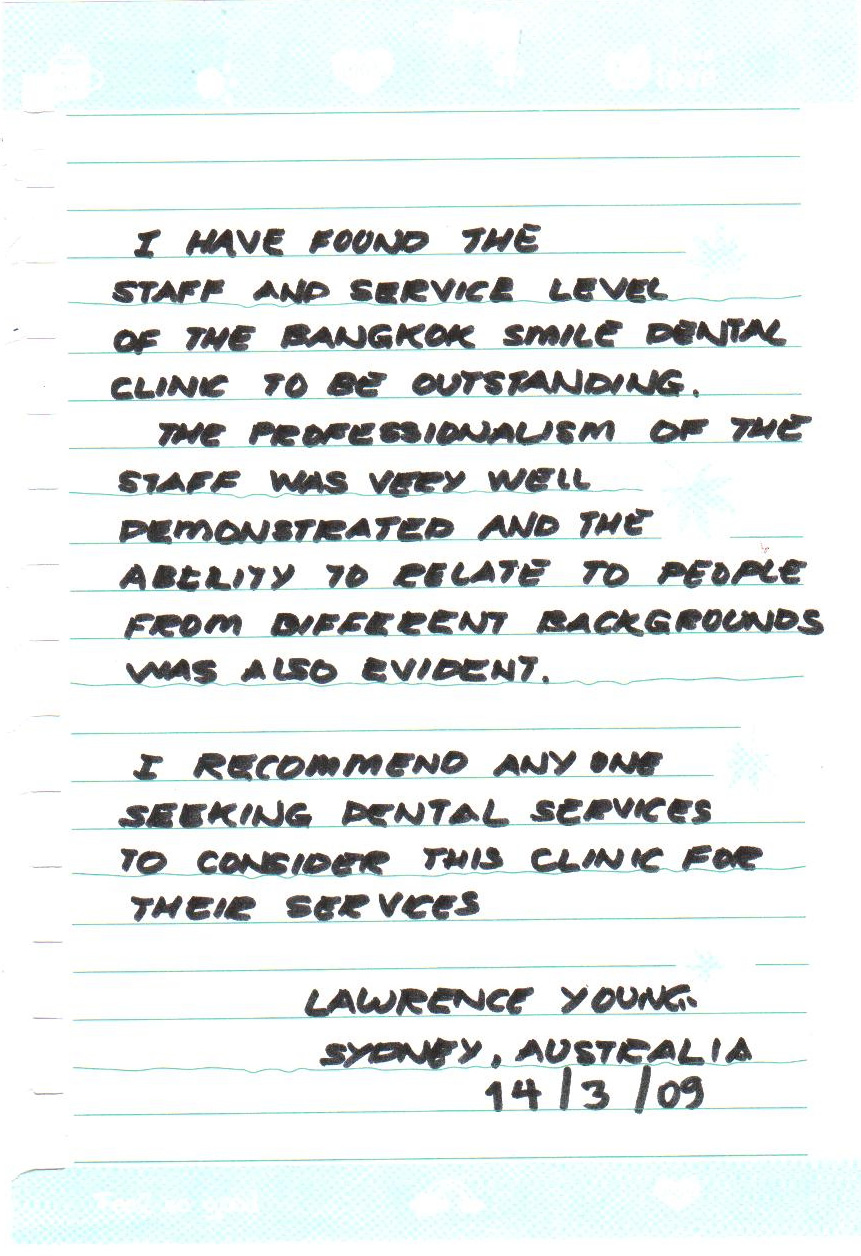 I HAVE FOUND THE
STAFF AND SERVICE LEVEL
OF THE BANGKOK SMILE DENTAL
CLINIC TO BE OUTSTANDING.
THE PROFESSIONALISM OF THE
STAFF WAS VERY WELL
DEMONSTRATED AND THE
ABILITY TO RELATE TO PEOPLE
FROM DIFFERENT BACKGROUNDS
WAS ALSO EVIDENT.
I RECOMMEND ANY ONE
SEEKING DENTAL SERVICES
TO CONSIDER THIS CLINIC FOR
THEIR SERVCES
LAWRENCE YOUNG.
SYDNEY, AUSTRALIA
14/3/09